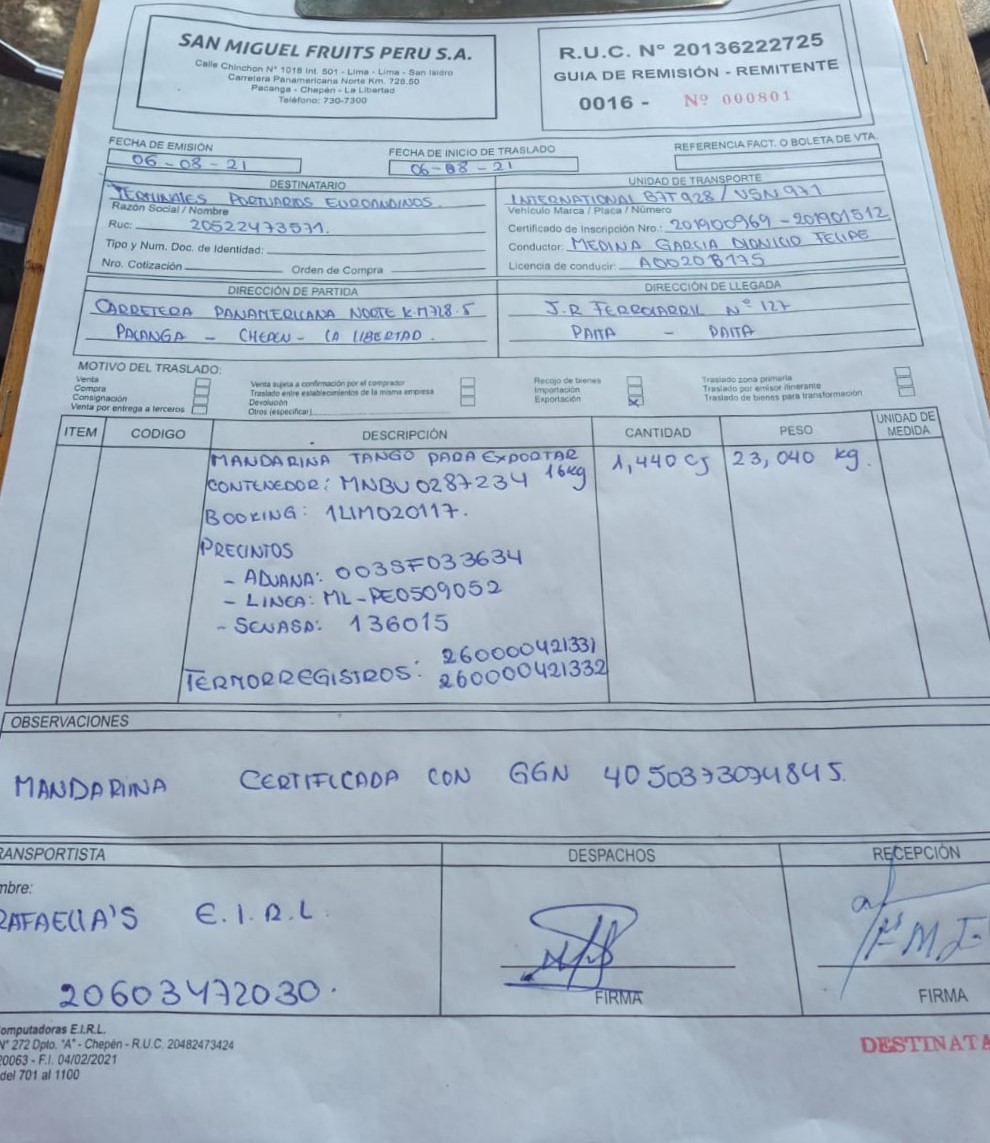 SAN MIGUEL FRUITS PERU S.A.
Calle Chinchon N° 1018 Int. 501 - Lima - Lima - San Isidro
Carretera Panamericana Norte Km. 728.50
Pacanga - Chepén - La Libertad
Teléfono: 730-7300
R.U.C. N° 20136222725
GUIA DE REMISIÓN - REMITENTE
0016 - Nº 000801
FECHA DE EMISIÓN
06-08-21
FECHA DE INICIO DE TRASLADO
06-08-21
REFERENCIA FACT. O BOLETA DE VTA.
DESTINATARIO
TERMINALES PORTUARIOS EUROANDINOS
Razón Social / Nombre
Ruc: 20522473571.
Tipo y Num. Doc. de Identidad:
Nro. Cotización Orden de Compra
UNIDAD DE TRANSPORTE
INTERNATIONAL B7T928 / V5N971
Vehículo Marca / Placa / Número
Certificado de Inscripción Nro.: 201900969 - 201901512
Conductor: MEDINA GARCIA DIONICIO FELIPE
Licencia de conducir: A0020B175
DIRECCIÓN DE PARTIDA
CARRETERA PANAMERICANA NORTE K.M728.5
PACANGA - CHEPEN - LA LIBERTAD.
DIRECCIÓN DE LLEGADA
J.R FERROCARRIL N° 127
PAITA - PAITA
MOTIVO DEL TRASLADO:
Venta
Compra
Consignación
Venta por entrega a terceros
Venta sujeta a confirmación por el comprador
Traslado entre establecimientos de la misma empresa
Devolución
Otros (especificar)
Recojo de bienes
Importación
Exportación X
Traslado zona primaria
Traslado por emisor itinerante
Traslado de bienes para transformación
ITEM CODIGO DESCRIPCIÓN CANTIDAD PESO UNIDAD DE MEDIDA
MANDARINA TANGO PARA EXPORTAR 1,440 CJ 23,040 kg.
CONTENEDOR: MNBU 0287234 16kg
BOOKING: 1LIM020117.
PRECINTOS
- ADUANA: 003SF033634
- LINEA: ML-PE0509052
- SENASA: 136015
260000421331
TERMORREGISTROS: 260000421332
OBSERVACIONES
MANDARINA CERTIFICADA CON GGN 4050373074845.
RANSPORTISTA
mbre:
RAFAELLA'S E.I.R.L.
20603472030.
DESPACHOS
FIRMA
RECEPCIÓN
FIRMA
omputadoras E.I.R.L.
N° 272 Dpto. "A" - Chepén - R.U.C. 20482473424
20063 - F.I. 04/02/2021
del 701 al 1100
DESTINATA